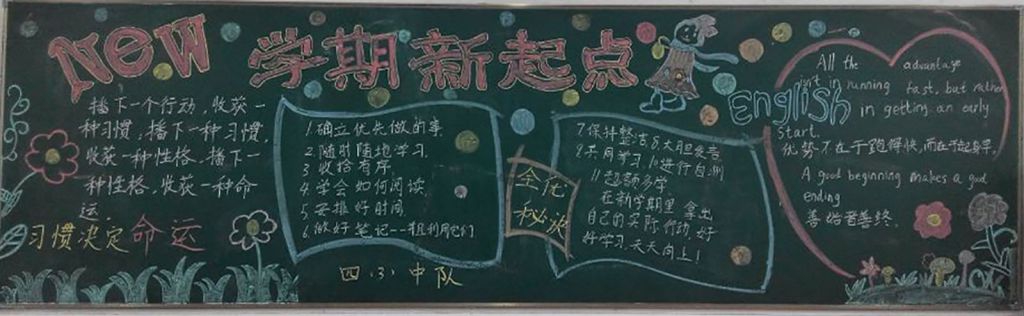 New 学期新起点
播下一个行动，收获一
种习惯，播下一种习惯，
收获一种性格，播下一
种性格，收获一种命
运。
习惯决定命运
1.确立优先做的事
2.随时随地学习
3.收拾有序
4.学会如何阅读
5.安排好时间
6.做好笔记
四（3）中队
全优
秘诀
7.保持整洁 8.大胆发言
9.共同学习 10.进行自测
11.超额多学
在新学期里，拿出
自己的实际行动，好
好学习，天天向上！
English
All the advantage
isn't in running fast, but rather
in getting an early
start.
优势不在于跑得快，而在于起身早。
A good beginning makes a good
ending
善始者善终。